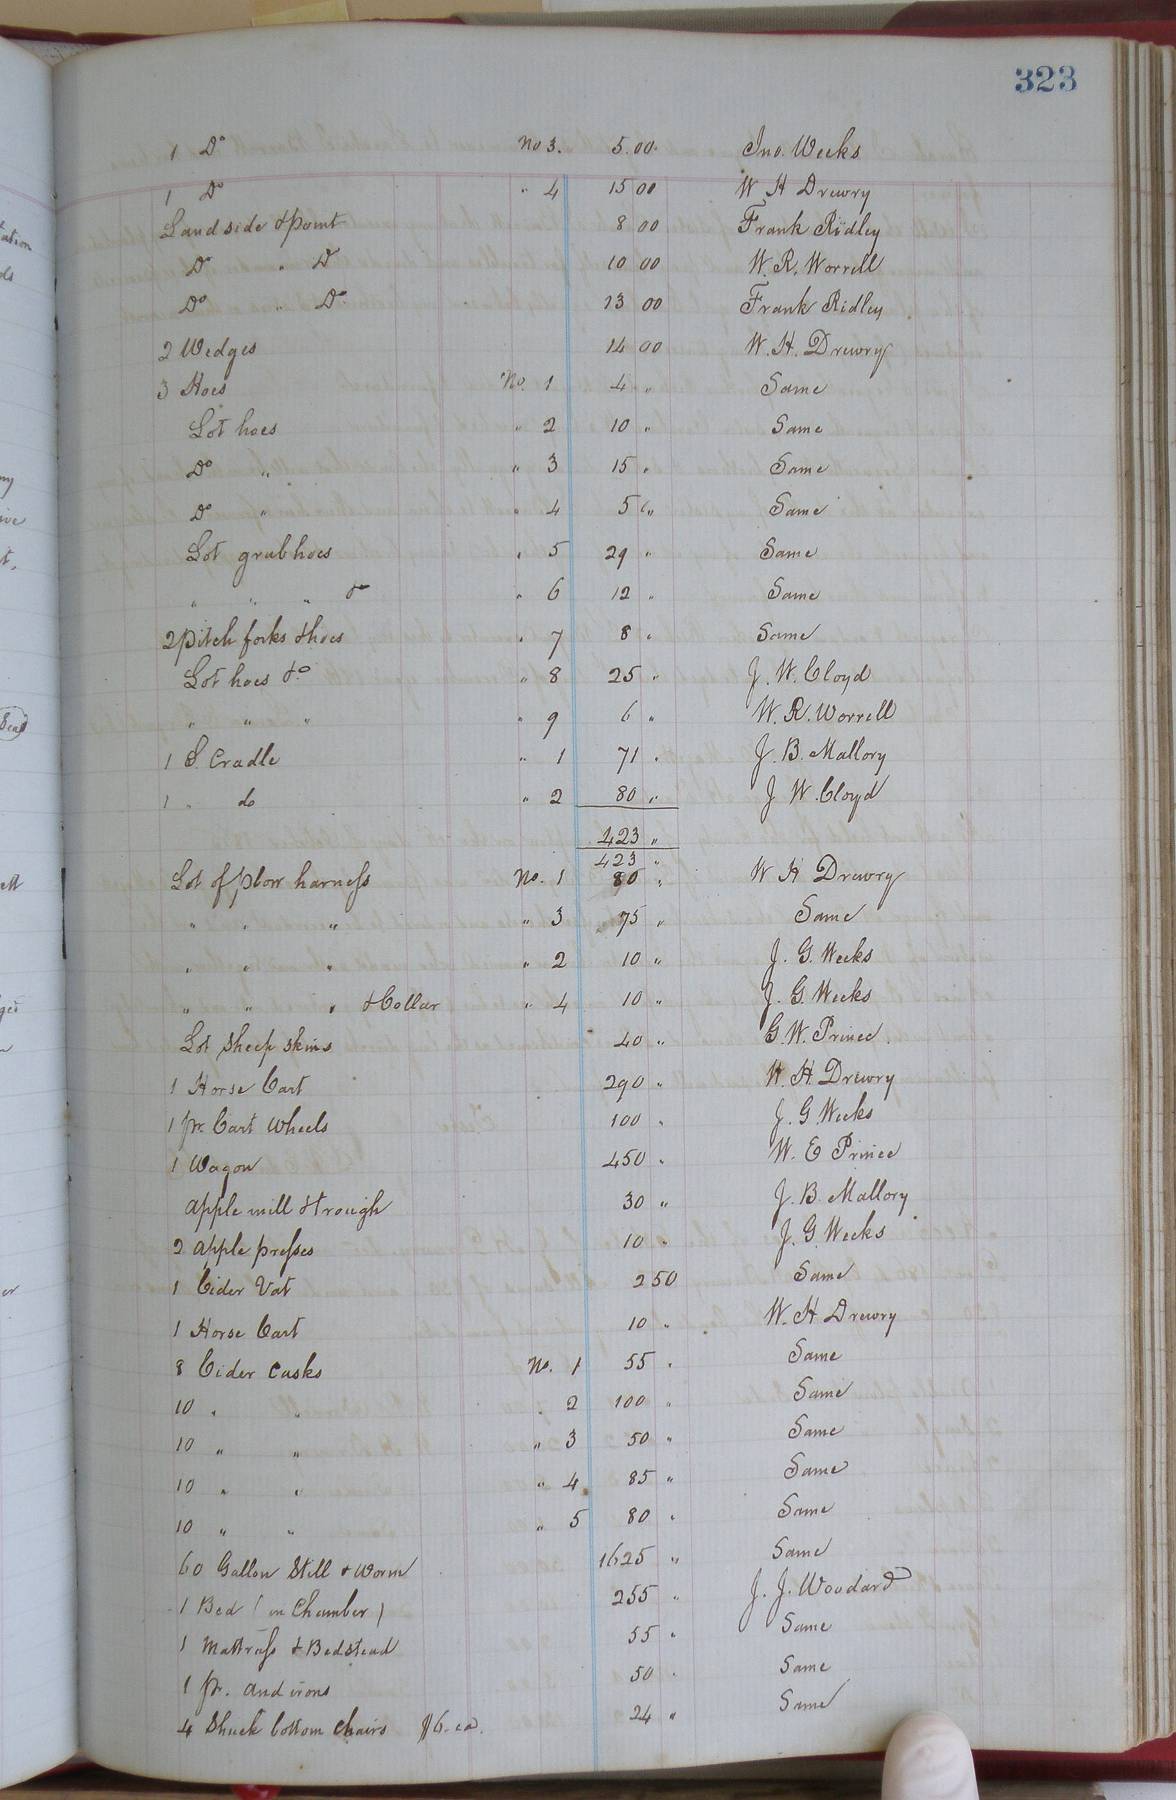 323
1 Do No 3. 5.00. Jno. Weeks
1 Do " 4 15 00 W H Drewry
Landside & point 8 00 Frank Ridley
Do " Do 10 00 W. R. Worrell
Do " Do 13 00 Frank Ridley
2 Wedges 14 00 W. H. Drewry
3 Hoes No. 1 4 " Same
Lot hoes " 2 10 " Same
Do " " 3 15 " Same
Do " " 4 5 " Same
Lot grubhoes " 5 29 " Same
" " " & " 6 12 " Same
2 pitch forks & hoes " 7 8 " Same
Lot hoes &c " 8 25 " J. W. Cloyd
" " " " 9 6 " W. R. Worrell
1 S. Cradle " 1 71 " J. B. Mallory
1 " do " 2 80 " J. W. Cloyd
423 "
423 "
Lot of plow harness No. 1 80 " W H Drewry
" " " " 3 75 " Same
" " " " 2 10 " J. G. Weeks
" " " & Collar " 4 10 " J. G. Weeks
Lot Sheep skins 40 " G. W. Prince.
1 Horse Cart 290 " W. H. Drewry
1 pr. Cart Wheels 100 " J. G. Weeks
1 Wagon 450 " W. E Prince
apple mill & trough 30 " J. B. Mallory
2 apple presses 10 " J. G. Weeks
1 Cider Vat 2 50 Same
1 Horse Cart 10 " W. H Drewry
8 Cider Casks No. 1 55 " Same
10 " " " 2 100 " Same
10 " " " 3 50 " Same
10 " " " 4 85 " Same
10 " " " 5 80 " Same
60 Gallon Still & Worm 1625 " Same
1 Bed (in Chamber) 255 " J. J. Woodard
1 Mattrass & Bedstead 55 " Same
1 pr. and irons 50 " Same
4 Shuck bottom Chairs $6. ea. 24 " Same